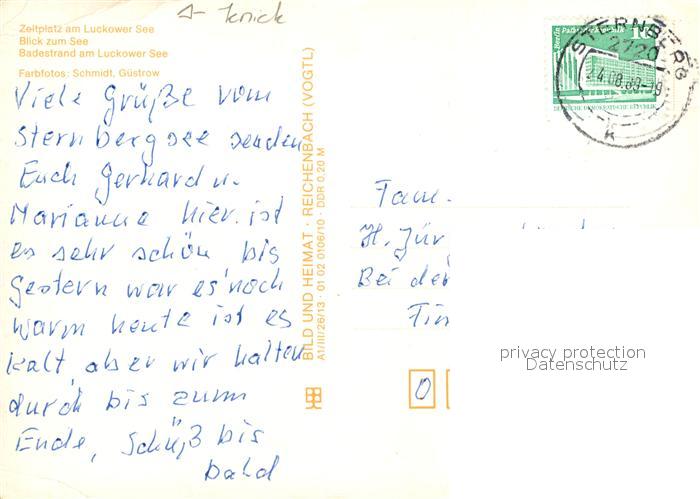 Knick
Zeltplatz am Luckower See
Blick zum See
Badestrand am Luckower See
Farbfotos: Schmidt, Güstrow
Viele Grüße vom
Sternbergsee senden
Euch Gerhard u.
Marianne hier ist
es sehr schön bis
gestern war es noch
warm heute ist es
kalt, aber wir halten
durch bis zum
Ende, Schüß bis
bald
BILD UND HEIMAT · REICHENBACH (VOGTL)
A1/III/26/13 · 01 02 0106/10 · DDR 0,20 M
STERNBERG
2720
24.08.89-19
k
DEUTSCHE DEMOKRATISCHE REPUBLIK
Fam.
H. Zür
Bei der
Fin
0
privacy protection
Datenschutz